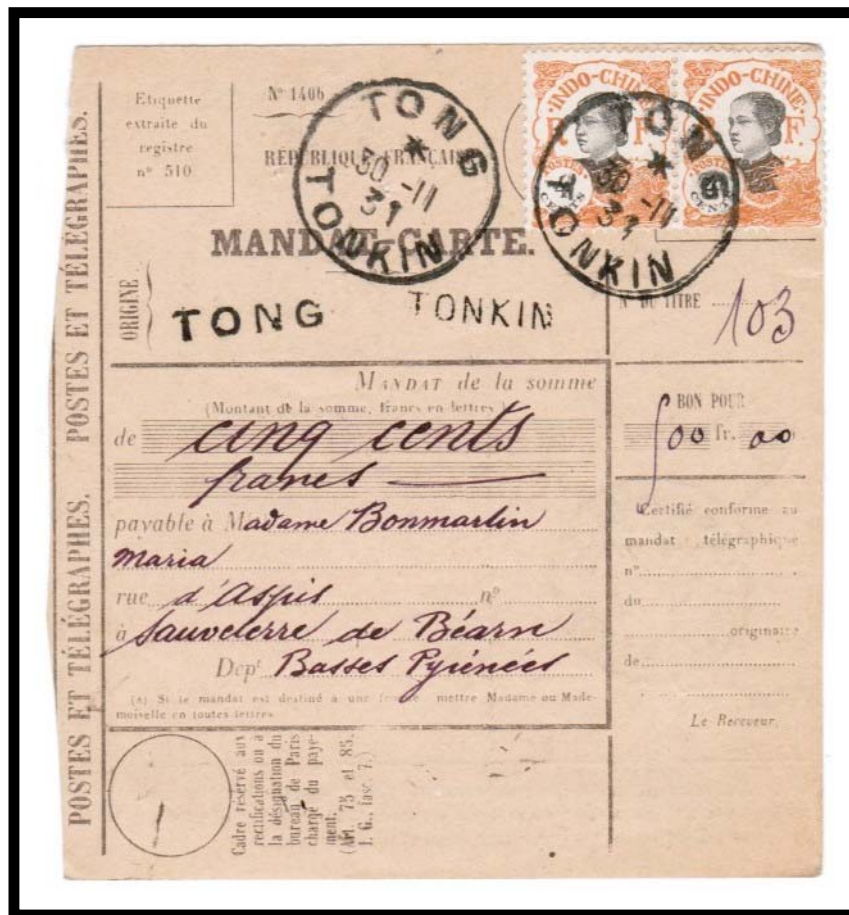 POSTES ET TÉLÉGRAPHES. POSTES ET TÉLÉGRAPHES.
Etiquette
extraite du
registre
n° 510
N° 1406
RÉPUBLIQUE FRANÇAISE
MANDAT-CARTE.
TONG
30 -11
31
TONKIN
INDO-CHINE
R F.
POSTES
INDO-CHINE
F.
POSTES
TONG
30 -11
31
TONKIN
ORIGINE
TONG TONKIN
N° DU TITRE
103
MANDAT de la somme
(Montant de la somme, francs en lettres.)
de cinq cents
francs
BON POUR
500 fr. 00
payable à Madame Bonmartin
Maria
rue d'Aspis n°
à Sauveterre de Béarn
Dept Basses Pyrénées
(A) Si le mandat est destiné à une femme mettre Madame ou Made-
moiselle en toutes lettres
Certifié conforme au
mandat télégraphique
n°
du
originaire
de
Le Receveur,
Cadre réservé aux
rectifications ou à
la désignation du
bureau de Paris
chargé du paye-
ment.
(Art. 75 et 85.
I. G., fasc. 7.)